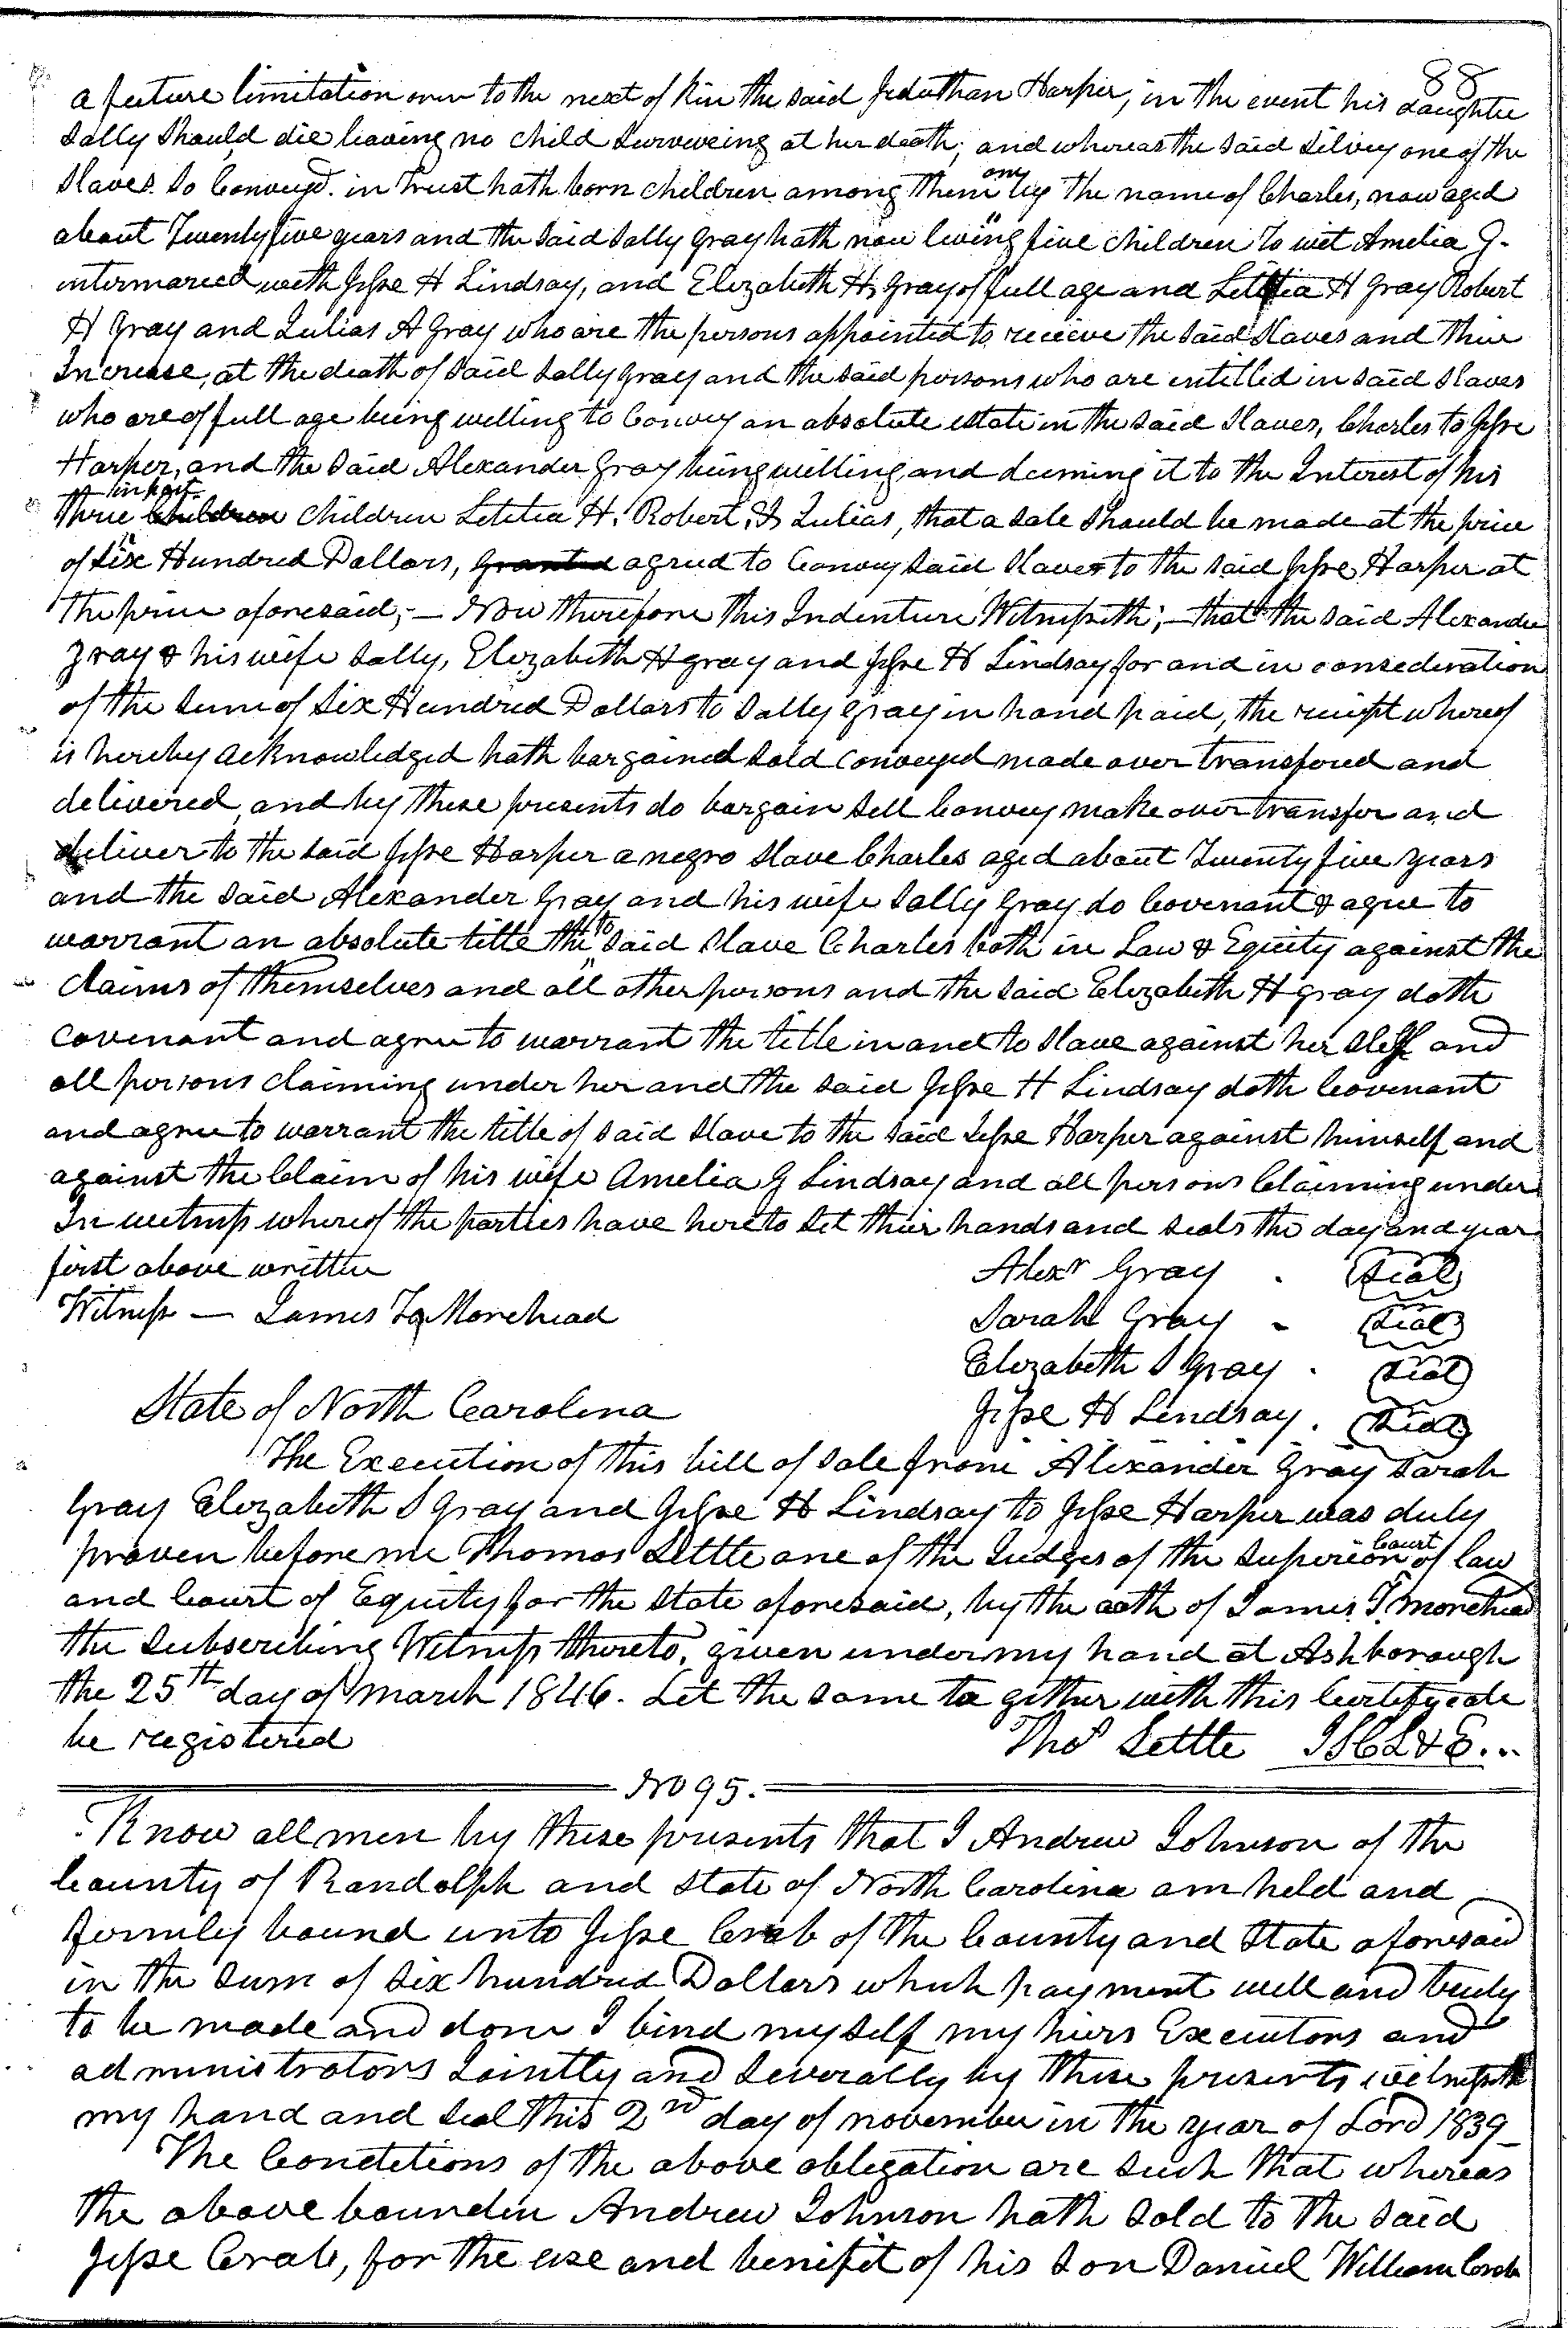 88
a future limitation over to the next of Kin the said Jeduthan Harper, in the event his daughter
Sally Should die leaving no child Surveveing at her death; and whereas the said Silvey one of the
Slaves So Conveyd. in trust hath born children among them one by the name of Charles, now aged
about Twenty five years and the said Sally Gray hath now living five children To wit Amelia G.
intermaried with Jesse H Lindsay, and Elizabeth H, Gray of full age and Letitia H Gray Robert
H Gray and Julias A Gray who are the persons appointed to recieve the said Slaves and thire
Increase, at the death of said Sally Gray and the said persons who are intitled in said Slaves
who are of full age being willing to Convey an absolute estate in the said Slaves, Charles to Jesse
Harper, and the said Alexander Gray being willing and deeming it to the Interest of his
three infant children children Letitia H. Robert, & Julias, that a Sale Should be made at the price
of Six Hundred Dollars, granted agreed to Convey said Slaves to the said Jesse Harper at
the price aforesaid; — Now therefore this Indenture Witnesseth; — that the said Alexander
Gray & his wife Sally, Elizabeth H gray and Jesse H Lindsay for and in consederation
of the Sum of Six Hundred Dollars to Sally Gray in hand paid, the receipt whereof
is hereby acknowledged hath bargained Sold conveyed made over transfered and
delivered, and by these presents do bargain Sell Convey make over transfer and
deliver to the said Jesse Harper a negro Slave Charles aged about Twenty five years
and the said Alexander Gray and his wife Sally Gray do Covenant & agree to
warrant an absolute title the to said Slave Charles both in Law & Equity against the
Claims of themselves and all other persons and the said Elizabeth H gray doth
Covenant and agree to warrant the title in and to Slave against her Self and
all persons claiming under her and the said Jesse H Lindsay doth Covenant
and agree to warrant the title of said Slave to the said Jesse Harper against himself and
against the Claim of his wife Amelia G Lindsay and all persons Claiming under
In witness whereof the parties have hereto Set their hands and Seals the day and year
first above written
Alexr Gray . (Seal)
Witness — James T Morehead
Sarah Gray - (Seal)
Elizabeth S Gray . (Seal)
State of North Carolina
Jesse H Lindsay . (Seal)
The Execution of this bill of Sale from Alexander Gray Sarah
Gray Elizabeth S Gray and Jesse H Lindsay to Jesse Harper was duly
proven before me Thomas Settle one of the Judges of the Superior Court of law
and Court of Equity for the State aforesaid, by the oath of James T. Morehead
the Subscribing Witness thereto, given under my hand at Ashborough
the 25th day of march 1846. Let the same to gether with this Certifycate
be registered
Thos Settle JSCL&E...
No 95.
Know all men by these presents that I Andrew Johnson of the
County of Randolph and State of North Carolina am held and
firmly bound unto Jesse Crab of the County and State aforesaid
in the Sum of Six hundred Dollars which payment well and truly
to be made and done I bind myself my hiers Executors and
administrators Jointly and Severally by these presents witnesseth
my hand and Seal this 2nd day of november in the year of Lord 1839
The Conditions of the above obligation are Such that whereas
the above bounden Andrew Johnson hath Sold to the said
Jesse Crab, for the use and benifit of his Son Daniel William Crab